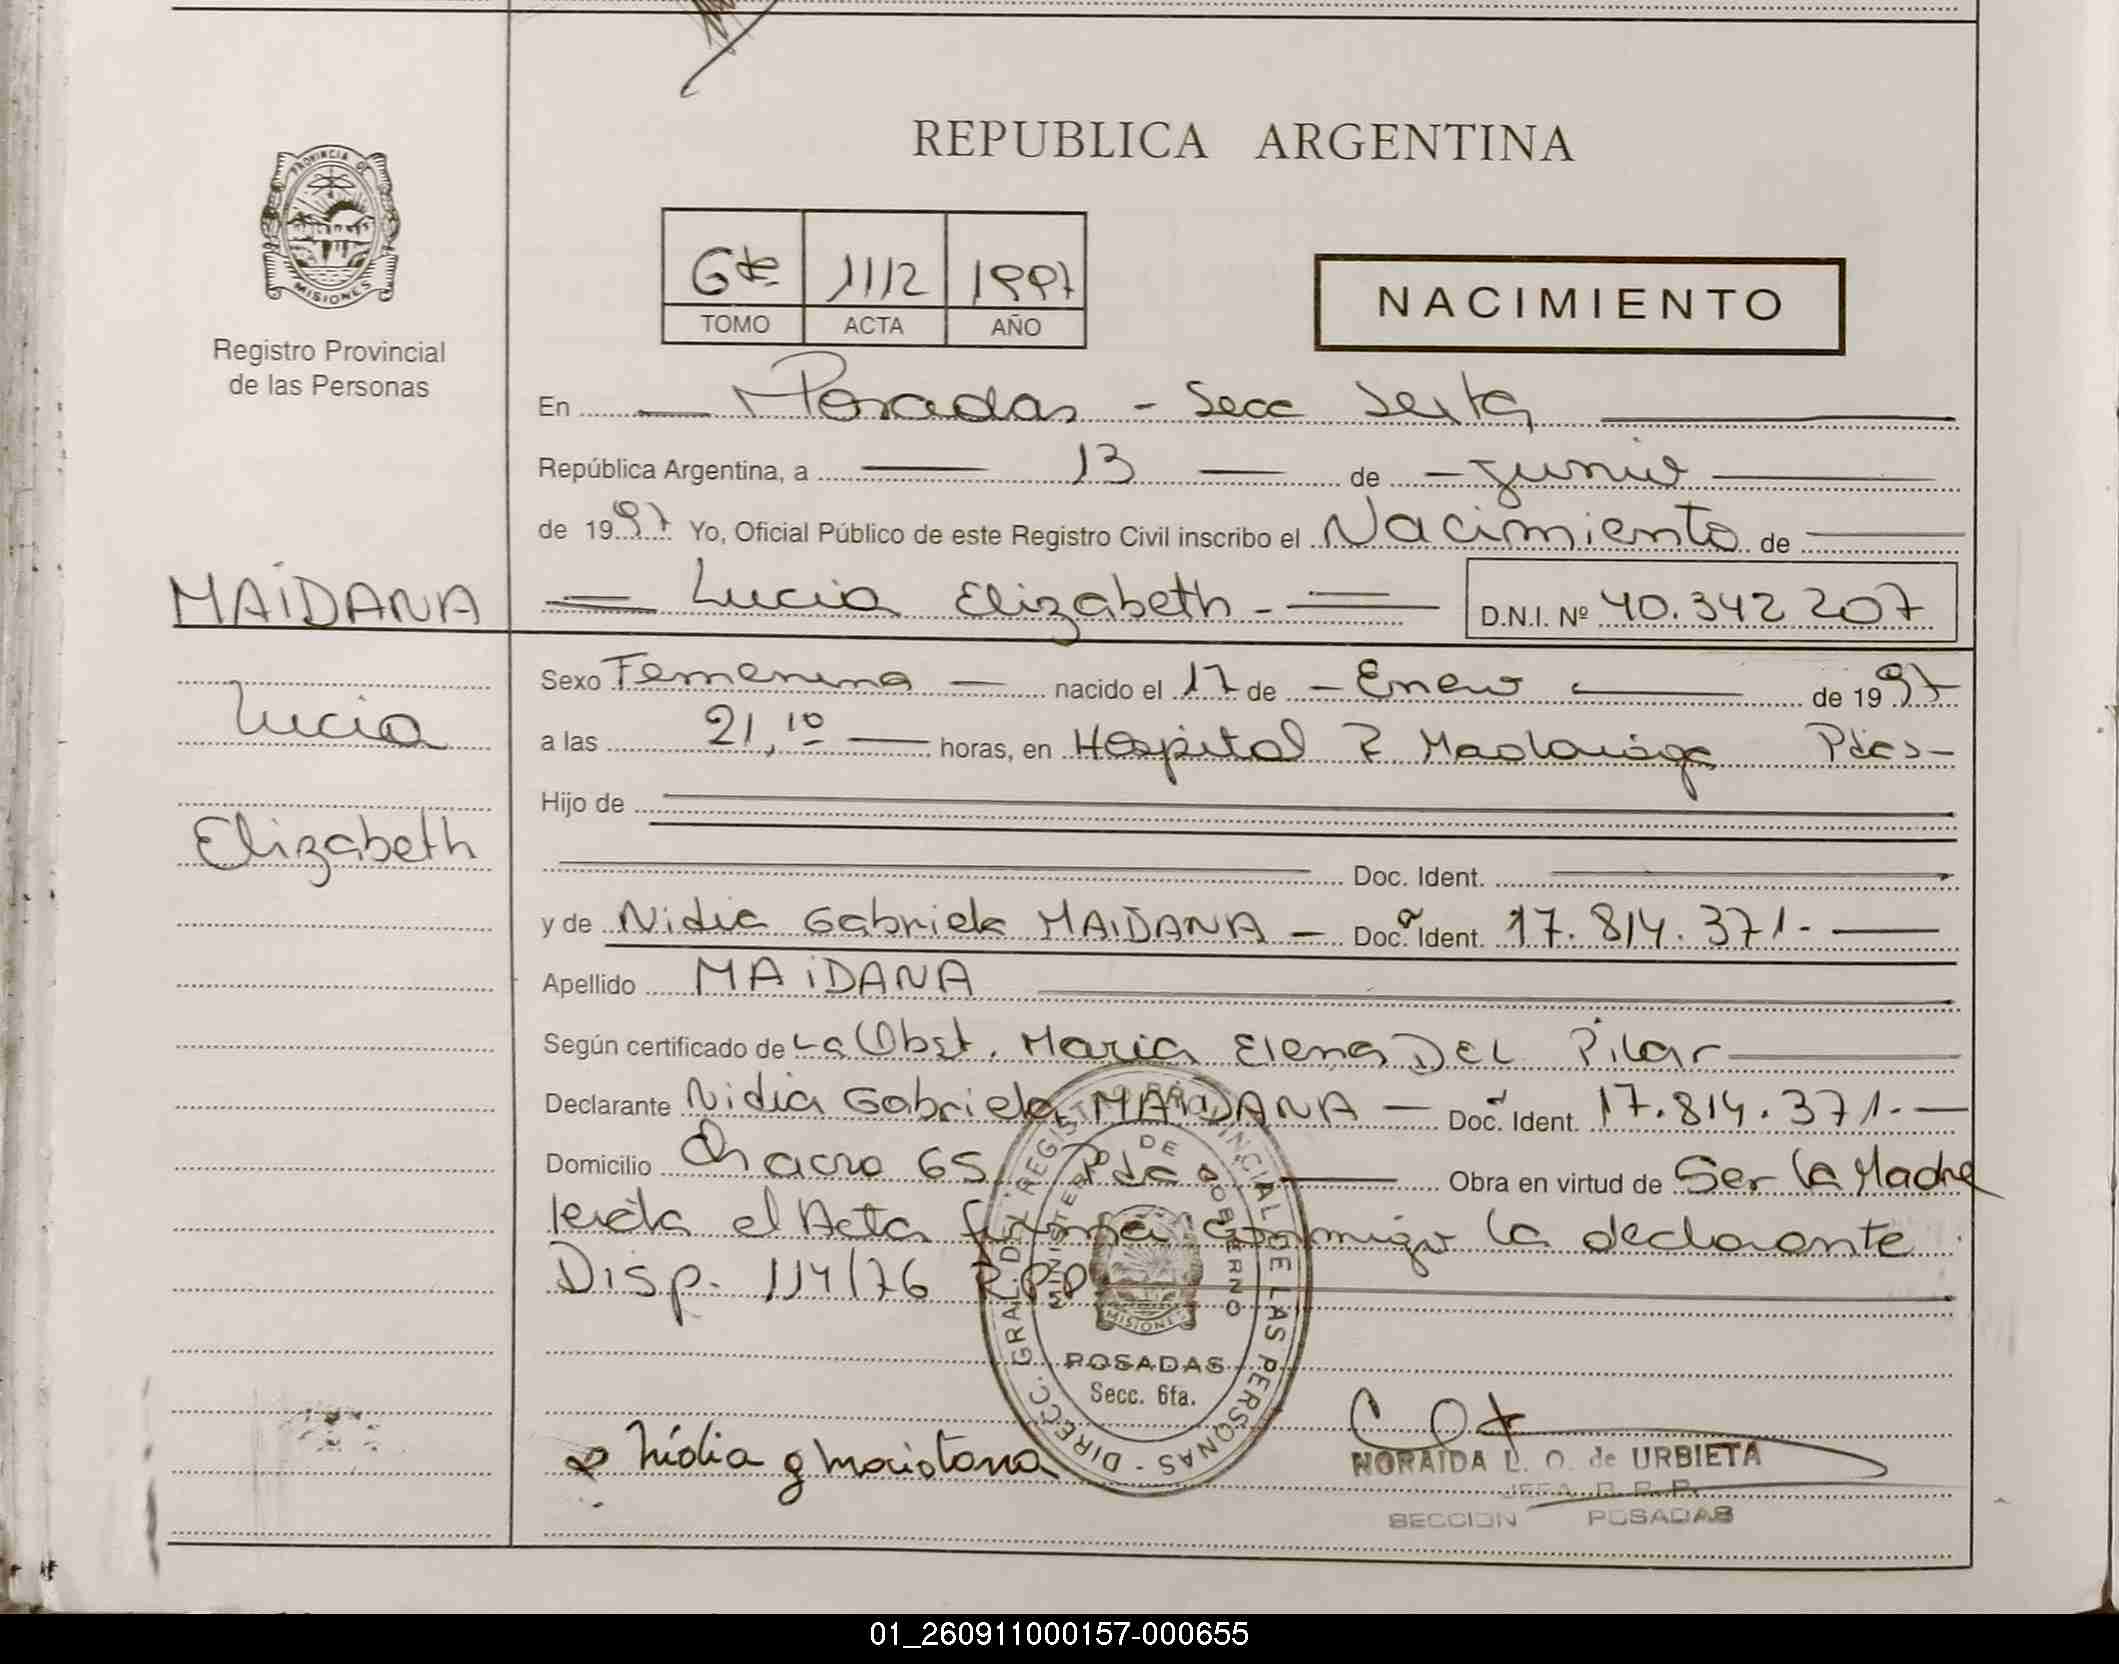 REPUBLICA ARGENTINA
PROVINCIA DE
MISIONES
Registro Provincial
de las Personas
6ta 1112 1997
TOMO ACTA AÑO
NACIMIENTO
En Posadas - Secc Sexta
República Argentina, a 13 de - Junio
de 1997 Yo, Oficial Público de este Registro Civil inscribo el Nacimiento de
MAIDANA
Lucia Elizabeth - D.N.I. Nº 40.342 207
Lucia
Elizabeth
Sexo Femenina nacido el 17 de - Enero de 1997
a las 21,10 horas, en Hospital R Madariaga Pdas-
Hijo de
Doc. Ident.
y de Nidia Gabriela MAIDANA - Doc. Ident. 17.814.371.-
Apellido MAIDANA
Según certificado de La Obst. Maria Elena DEL Pilar
Declarante Nidia Gabriela MAIDANA - Doc. Ident. 17.814.371.-
Domicilio Chacra 65 Pdas Obra en virtud de Ser la Madre
leida el Acta firma conmigo la declarante
Disp. 114/76 R.P.P
DIRECC. GRAL. DEL REGISTRO PROVINCIAL DE LAS PERSONAS -
MINISTERIO DE GOBIERNO
MISIONES
POSADAS
Secc. 6ta.
Nidia g maidana
NORAIDA L. O. de URBIETA
JEFA R. P. P.
SECCION POSADAS
01_260911000157-000655